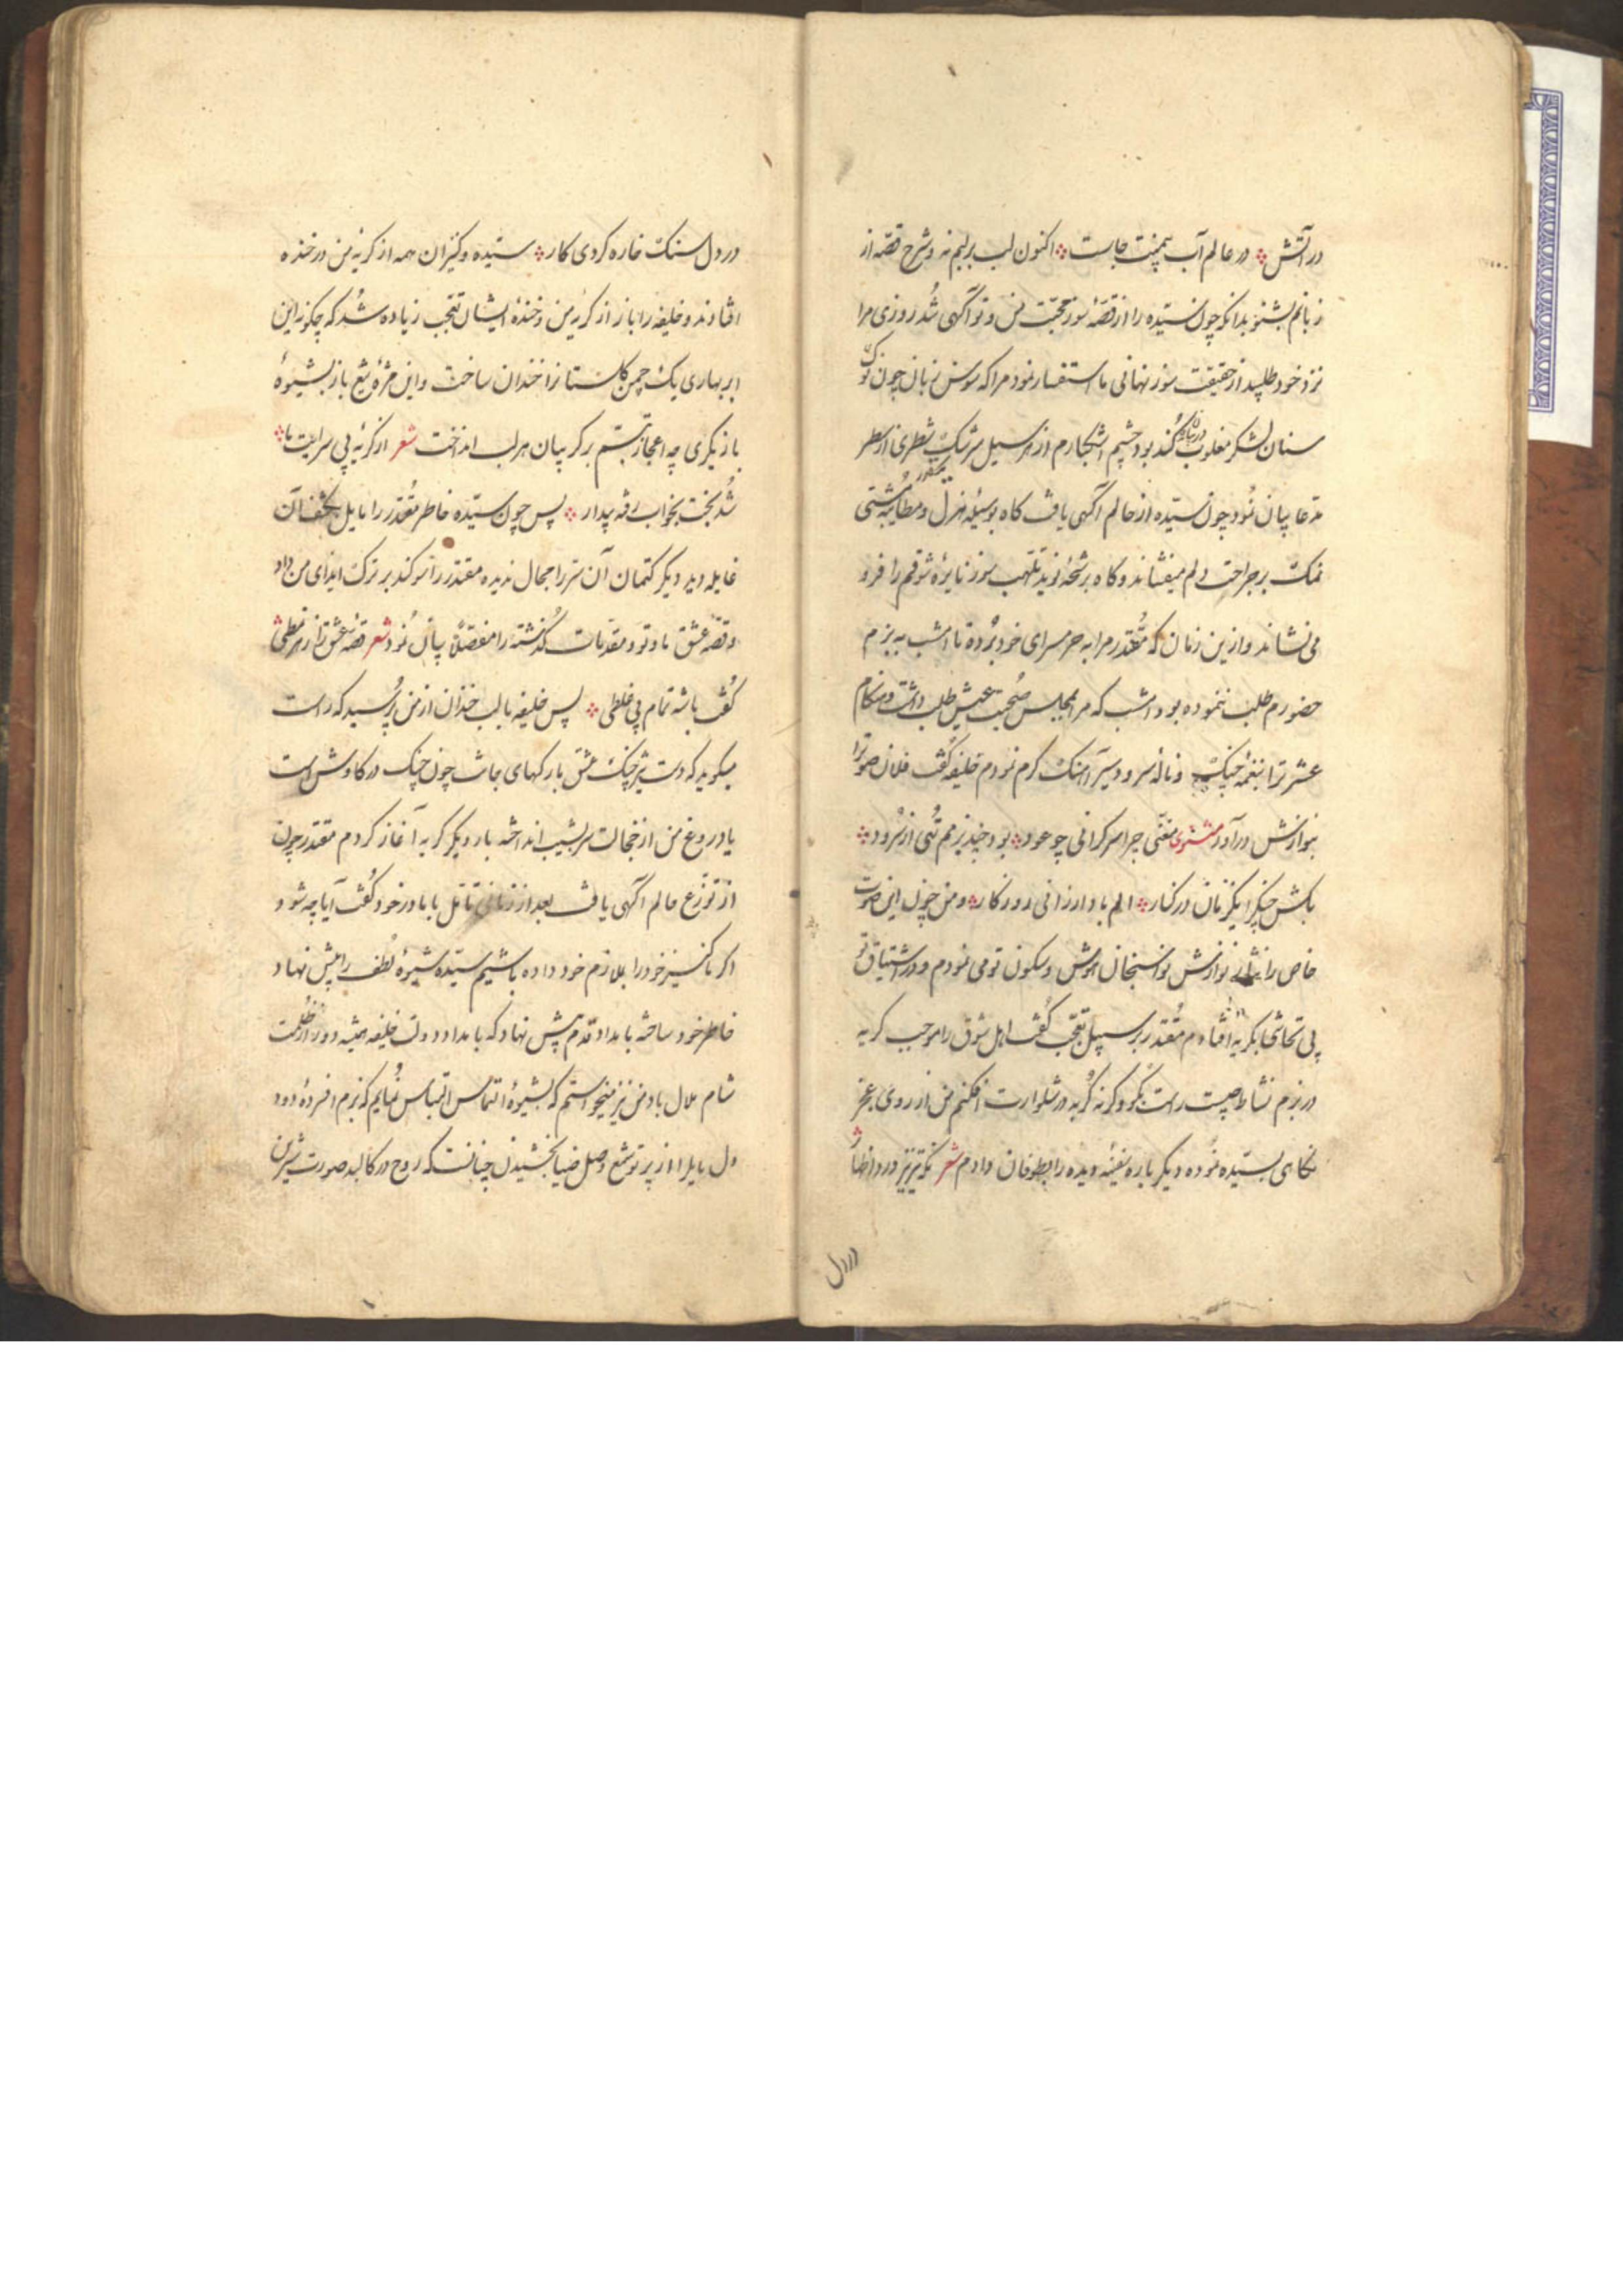 در آتش در عالم آب همچنت جابست اکنون لب بر لبم نه و شرح قصّه از
زبانم بشنو بدانکه چون ستیده را از قصّهٔ سوز محبّت من و تو آگهی شُد روزی مرا
نزد خود طلبید از حقیقت سوز نهانی ما استفسار نمود مرا که سوسن زبان چون نوک
سنان لشکر مغلوب کُند بود چشم اشکبارم از سیل سرشک شطری از سطر
مدّعا بیان نمود چون ستیده از حالم آگهی یافت گاه بوسیلهٔ هزل و مطایبه مشتی
نمک بر جراحت دلم میفشاند و گاه برشحهٔ نوید تلهّب سوز نایرهٔ شوقم را فرو
می نشاند و ازین زمان که مُقتدر مرا به حرمسرای خود بُرده تا امشب به بزم
حضورم طلب ننموده بود امشب که مرا بمجلس صُحبت عیش طلب داشت و هنگام
عشرترا بنغمهٔ چنگ و نالهٔ سرود سیرآهنگ گرم نمودم خلیفه گفت فلان صوترا
بنوازش درآور مثنوی مغنّی چرا سرگرانی چو عود بود چند بزمم تُهی از سُرود
بکش چنگرا یکزمان در کنار الم باد ارزانی روزگار و من چون این صوت
خاص را نوازش نواسنجان هوش و سکون تو می نمودم و در اشتیاق تو
بی تحاشا بگریه افتادم مُقتدر بر سبیل تعجّب گفت اهل شوق را موجب گریه
در بزم نشاط چیست راست بگو وگرنه گربه در شلوارت افکنم من از روی عجز
نگاهی بستیده نموده دیگر باره سفینهٔ دیده را بطوفان دادم شعر
در دل
در دل سنگ خاره کردی کار ستیده و کنیزان همه از گریهٔ من در خنده
افتادند و خلیفه را باز از گریهٔ من و خندهٔ ایشان تعجّب زیاده شُد که چگونه این
ابر بهاری یک چمن گلستانرا خندان ساخت و این مژه شع باز بشیوهٔ
بازیگری چه اعجاز تبسّم بر گریبان هر لب انداخت شعر از گریهٔ بی سرایت ما
شُد بخت بخواب رفته بیدار پس چون ستیده خاطر مُقتدر را مایل کشف آن
غایله دید دیگر کتمان آن سرّ را مجال ندیده مقتدر را سوگند بر ترک ایذای من داد
و قصّهٔ عشق ما و تو و مقدّمات گذشته را مفصّلاً بیان نمود شعر قصّهٔ عشق را ز هر نمطی
گفت باشه تمام بی غلطی پس خلیفه با لب خندان از من پُرسید که راست
میگوید که دست تیز چنگ عشق با رگهای جانت چون چنگ در کاوش است
یا دروغ من از خجالت سر بشیب انداخته بار دیگر گریه آغاز کردم مقتدر چون
از توزّع حالم آگهی یافت بعد از زمانی تامّل بابا در خود گفت آیا چه شود
اگر ما کنیز خود را بملازم خود داده باشیم ستیده شیوهٔ لُطف را پیش نهاد
خاطر خود ساخته بامداد قدم پیش نهاد که بامداد دولت خلیفه همیشه دور از ظُلمت
شام ملال باد من نیز میخواستم که بشیوهٔ التماس التماس نُمایم که بزم افسردهٔ دود
دل بابلرا از پرتو شمع وصل ضیا بخشیدن چنانست که روح در کالبد صورت شیرین